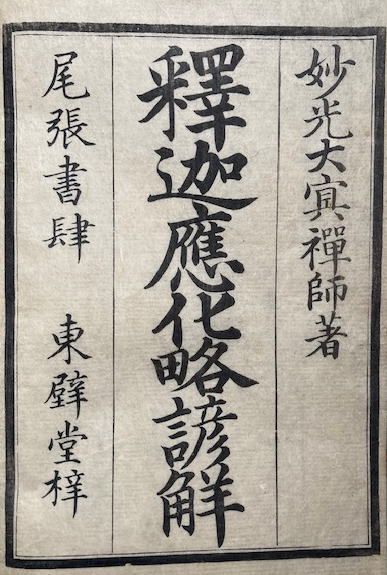 妙光大寘禪師著
釋迦應化略諺解
尾張書肆 東壁堂梓